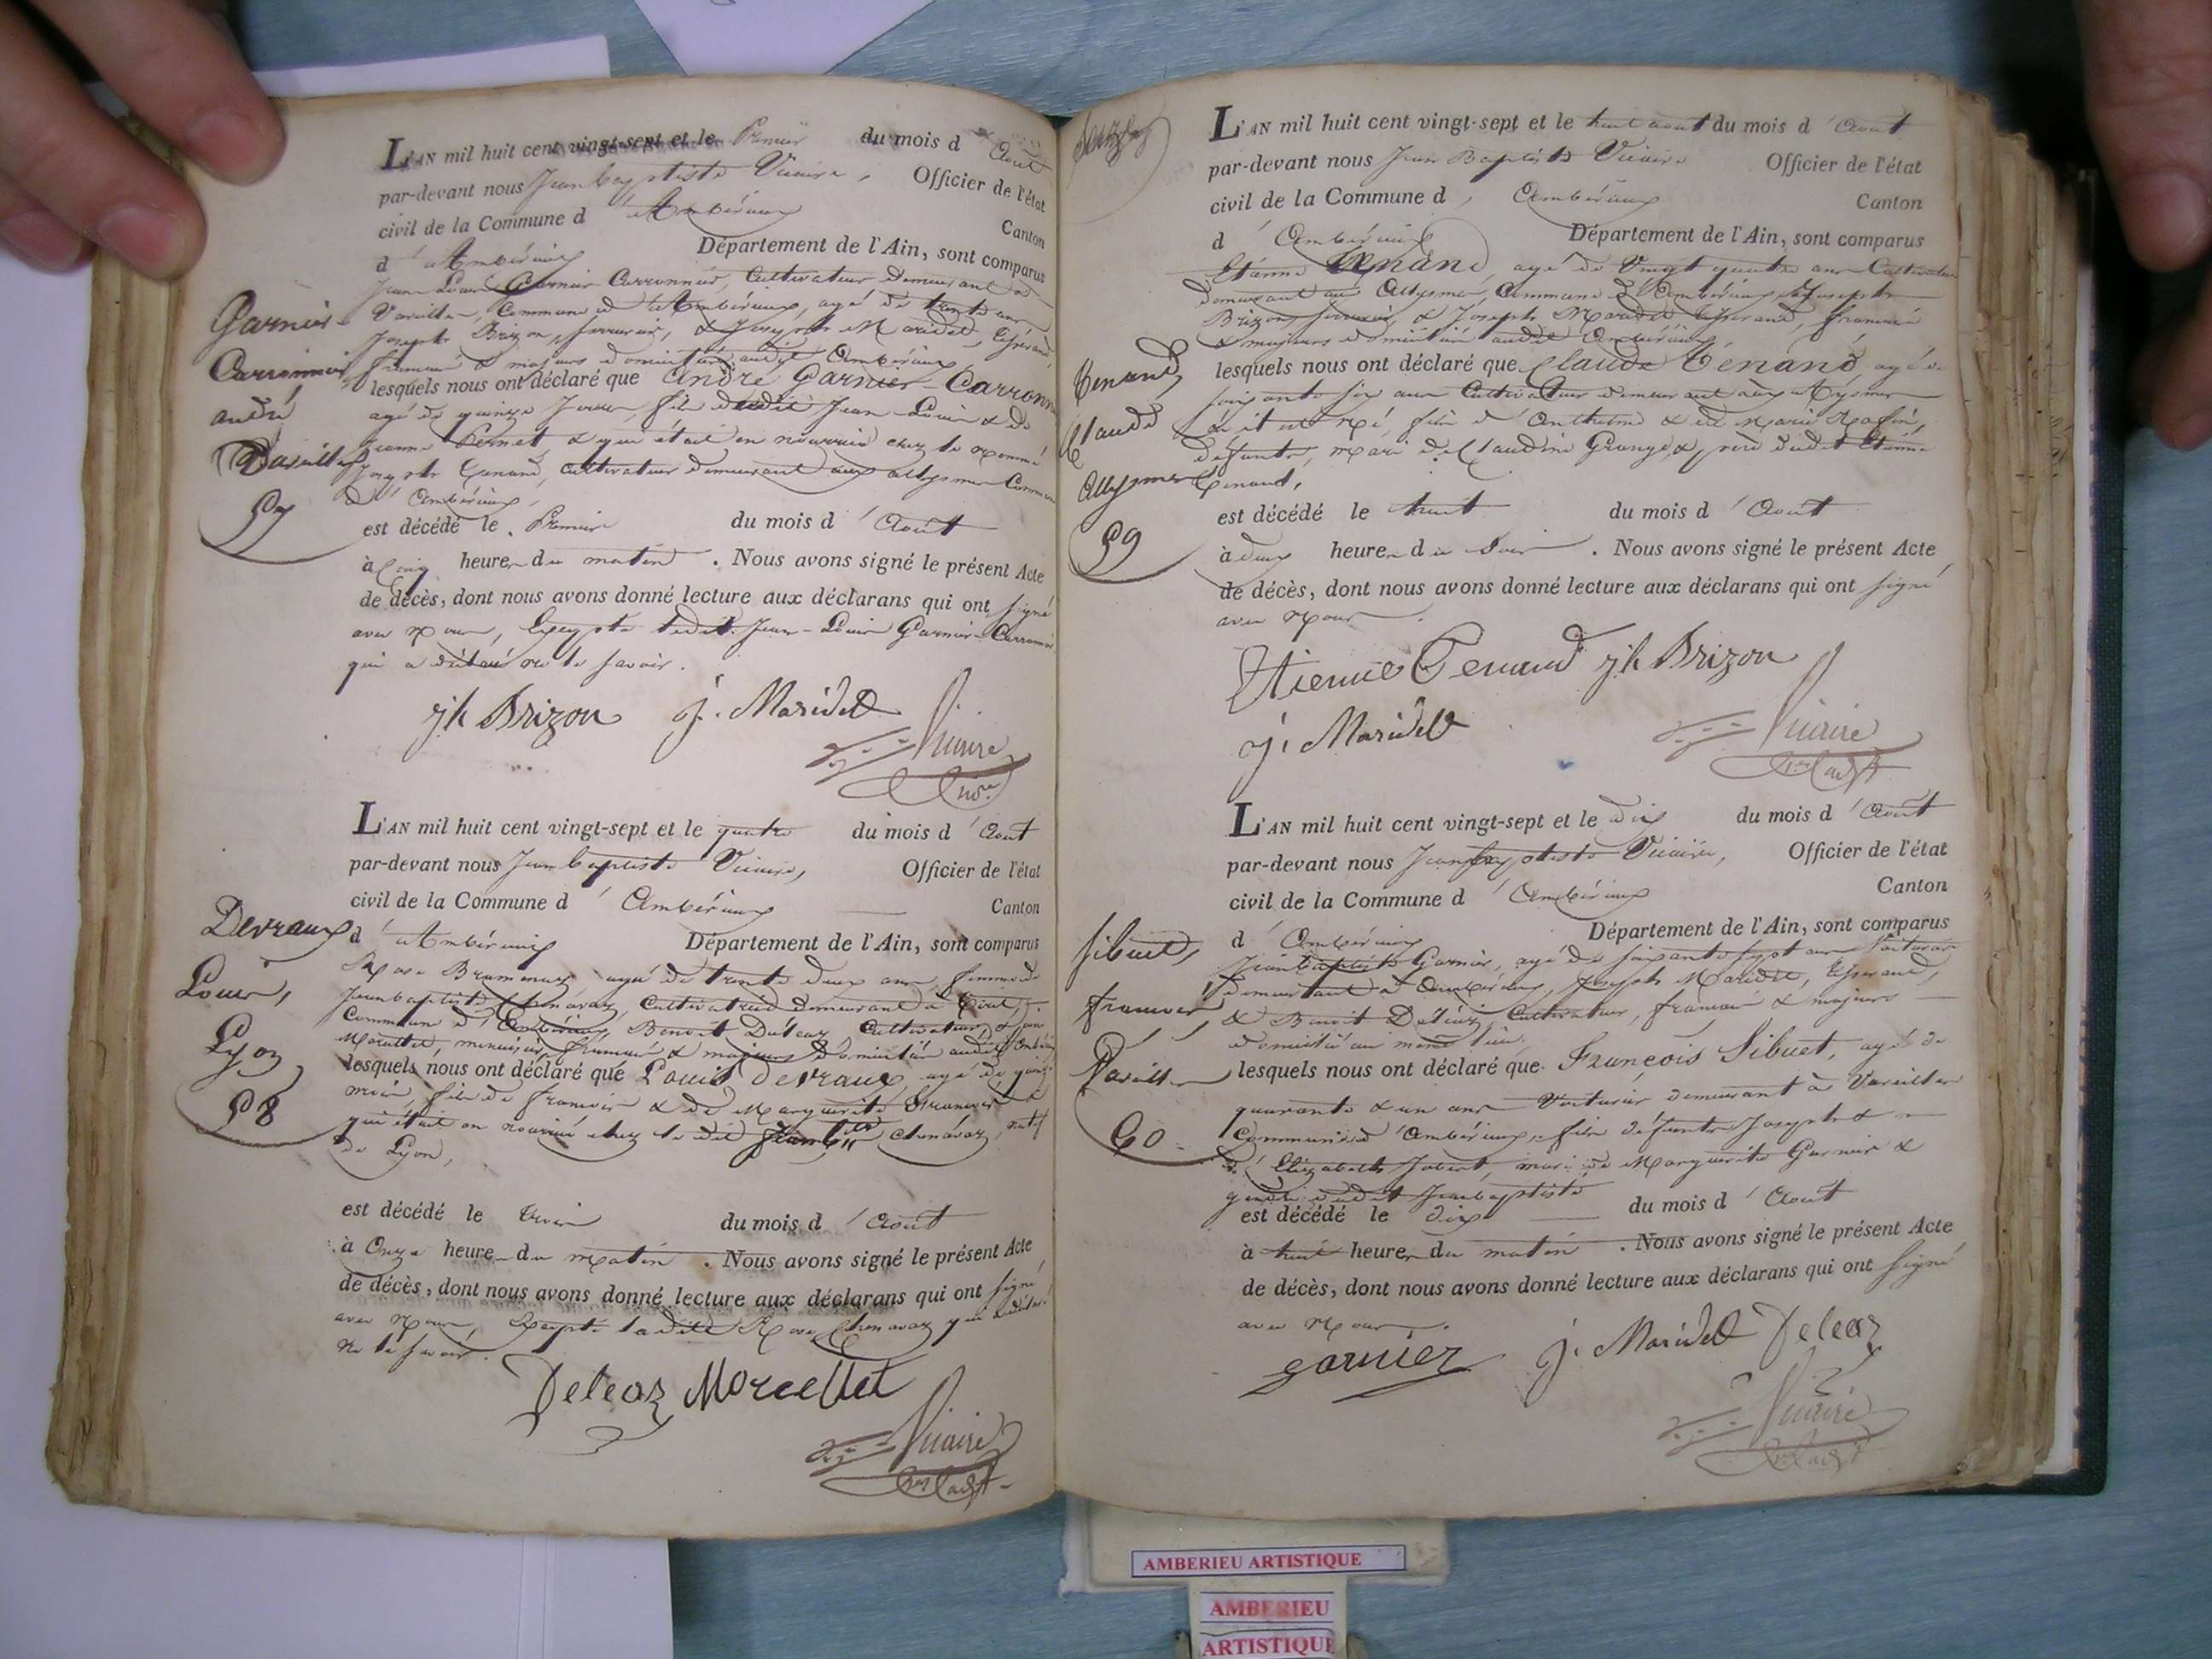 L'AN mil huit cent vingt-sept et le Premier du mois d'Aout
par-devant nous Jean baptiste Vicaire, Officier de l'état
civil de la Commune d'Ambérieux Canton
d'Ambérieux Département de l'Ain, sont comparus
Jean-Louis Garnier Carronnier, Cultivateur demeurant à
Vareilles, Commune d'Ambérieux, agé de trente ans
Joseph Brizon, serrurier, & Joseph Maridet, tisserand,
français & majeurs domiciliés audit Ambérieux,
lesquels nous ont déclaré que André Garnier-Carronn
agé de quinze jours, fils dudit Jean-Louis & de
Jeanne Pernet, & qui était en nourrice chez le nommé
Joseph Tenand, cultivateur demeurant aux allymes Commune
d'Ambérieux,
est décédé le Premier du mois d'Aout
à Cinq heures du matin. Nous avons signé le présent Acte
de décès, dont nous avons donné lecture aux déclarans qui ont signé
avec nous, Excepté ledit Jean-Louis Garnier-Carronnier
qui a déclaré ne le savoir.
jh Brizon J. Maridet
Vicaire
Garnier-
Carronnier
andré
Vareilles
57
L'AN mil huit cent vingt-sept et le quatre du mois d'Aout
par-devant nous Jean baptiste Vicaire, Officier de l'état
civil de la Commune d'Ambérieux Canton
d'Ambérieux Département de l'Ain, sont comparus
Rose agée de trente deux ans, femme de
Jean baptiste Chenavaz, Cultivatrice demeurant à Tiret,
Commune d'Ambérieux, Benoit Deleaz, Cultivateur, &
Morcellet, menuisier, français & majeurs domiciliés audit
lesquels nous ont déclaré que Louis Devraux, agé de
mois, fils de François & de Marguerite
qui était en nourrice chez le dit Jean bte Chenavaz, natif
de Lyon,
est décédé le trois du mois d'Aout
à Onze heures du matin. Nous avons signé le présent Acte
de décès, dont nous avons donné lecture aux déclarans qui ont signé
avec nous, Excepté ladite Rose Chenavaz qui a déclaré
ne le savoir.
Deleaz Morcellet
Vicaire
Devraux
Louis,
Lyon
58
L'AN mil huit cent vingt-sept et le huit aout du mois d'Aout
par-devant nous Jean Baptiste Vicaire Officier de l'état
civil de la Commune d'Ambérieux Canton
d'Ambérieux Département de l'Ain, sont comparus
Etienne Tenand, agé de Vingt quatre ans Cultivateur
demeurant aux Allymes, Commune d'Ambérieux, Joseph
Brizon, serrurier, & Joseph Maridet tisserand, français
& majeurs domiciliés audit Ambérieux
lesquels nous ont déclaré que Claude Tenand agé de
soixante six ans Cultivateur demeurant aux allymes
où il est né, fils d'Anthelme & de Marie
défunts, mari de Claudine Grange, & père dudit Etienne
Tenand,
est décédé le huit du mois d'Aout
à deux heures du soir. Nous avons signé le présent Acte
de décès, dont nous avons donné lecture aux déclarans qui ont signé
avec nous.
Etienne Tenand jh Brizon
J. Maridet
Vicaire
Tenand,
Claude
Allymes
59
L'AN mil huit cent vingt-sept et le dix du mois d'Aout
par-devant nous Jean baptiste Vicaire, Officier de l'état
civil de la Commune d'Ambérieux Canton
d'Ambérieux Département de l'Ain, sont comparus
Jean baptiste Garnier, agé de soixante sept ans Voiturier
demeurant à Ambérieux, Joseph Maridet, tisserand,
& Benoit Deleaz, Cultivateur, français & majeurs
domiciliés au même lieu,
lesquels nous ont déclaré que François Sibuet, agé de
quarante & un ans Voiturier demeurant à Vareilles
Commune d'Ambérieux, fils défunts Joseph &
d'Elizabeth Jobert, mari de Marguerite Garnier &
gendre dudit Jean baptiste
est décédé le dix du mois d'Aout
à huit heures du matin. Nous avons signé le présent Acte
de décès, dont nous avons donné lecture aux déclarans qui ont signé
avec nous.
garnier J. Maridet Deleaz
Vicaire
Sibuet,
françois,
Vareilles
60
AMBERIEU ARTISTIQUE
AMBERIEU
ARTISTIQUE